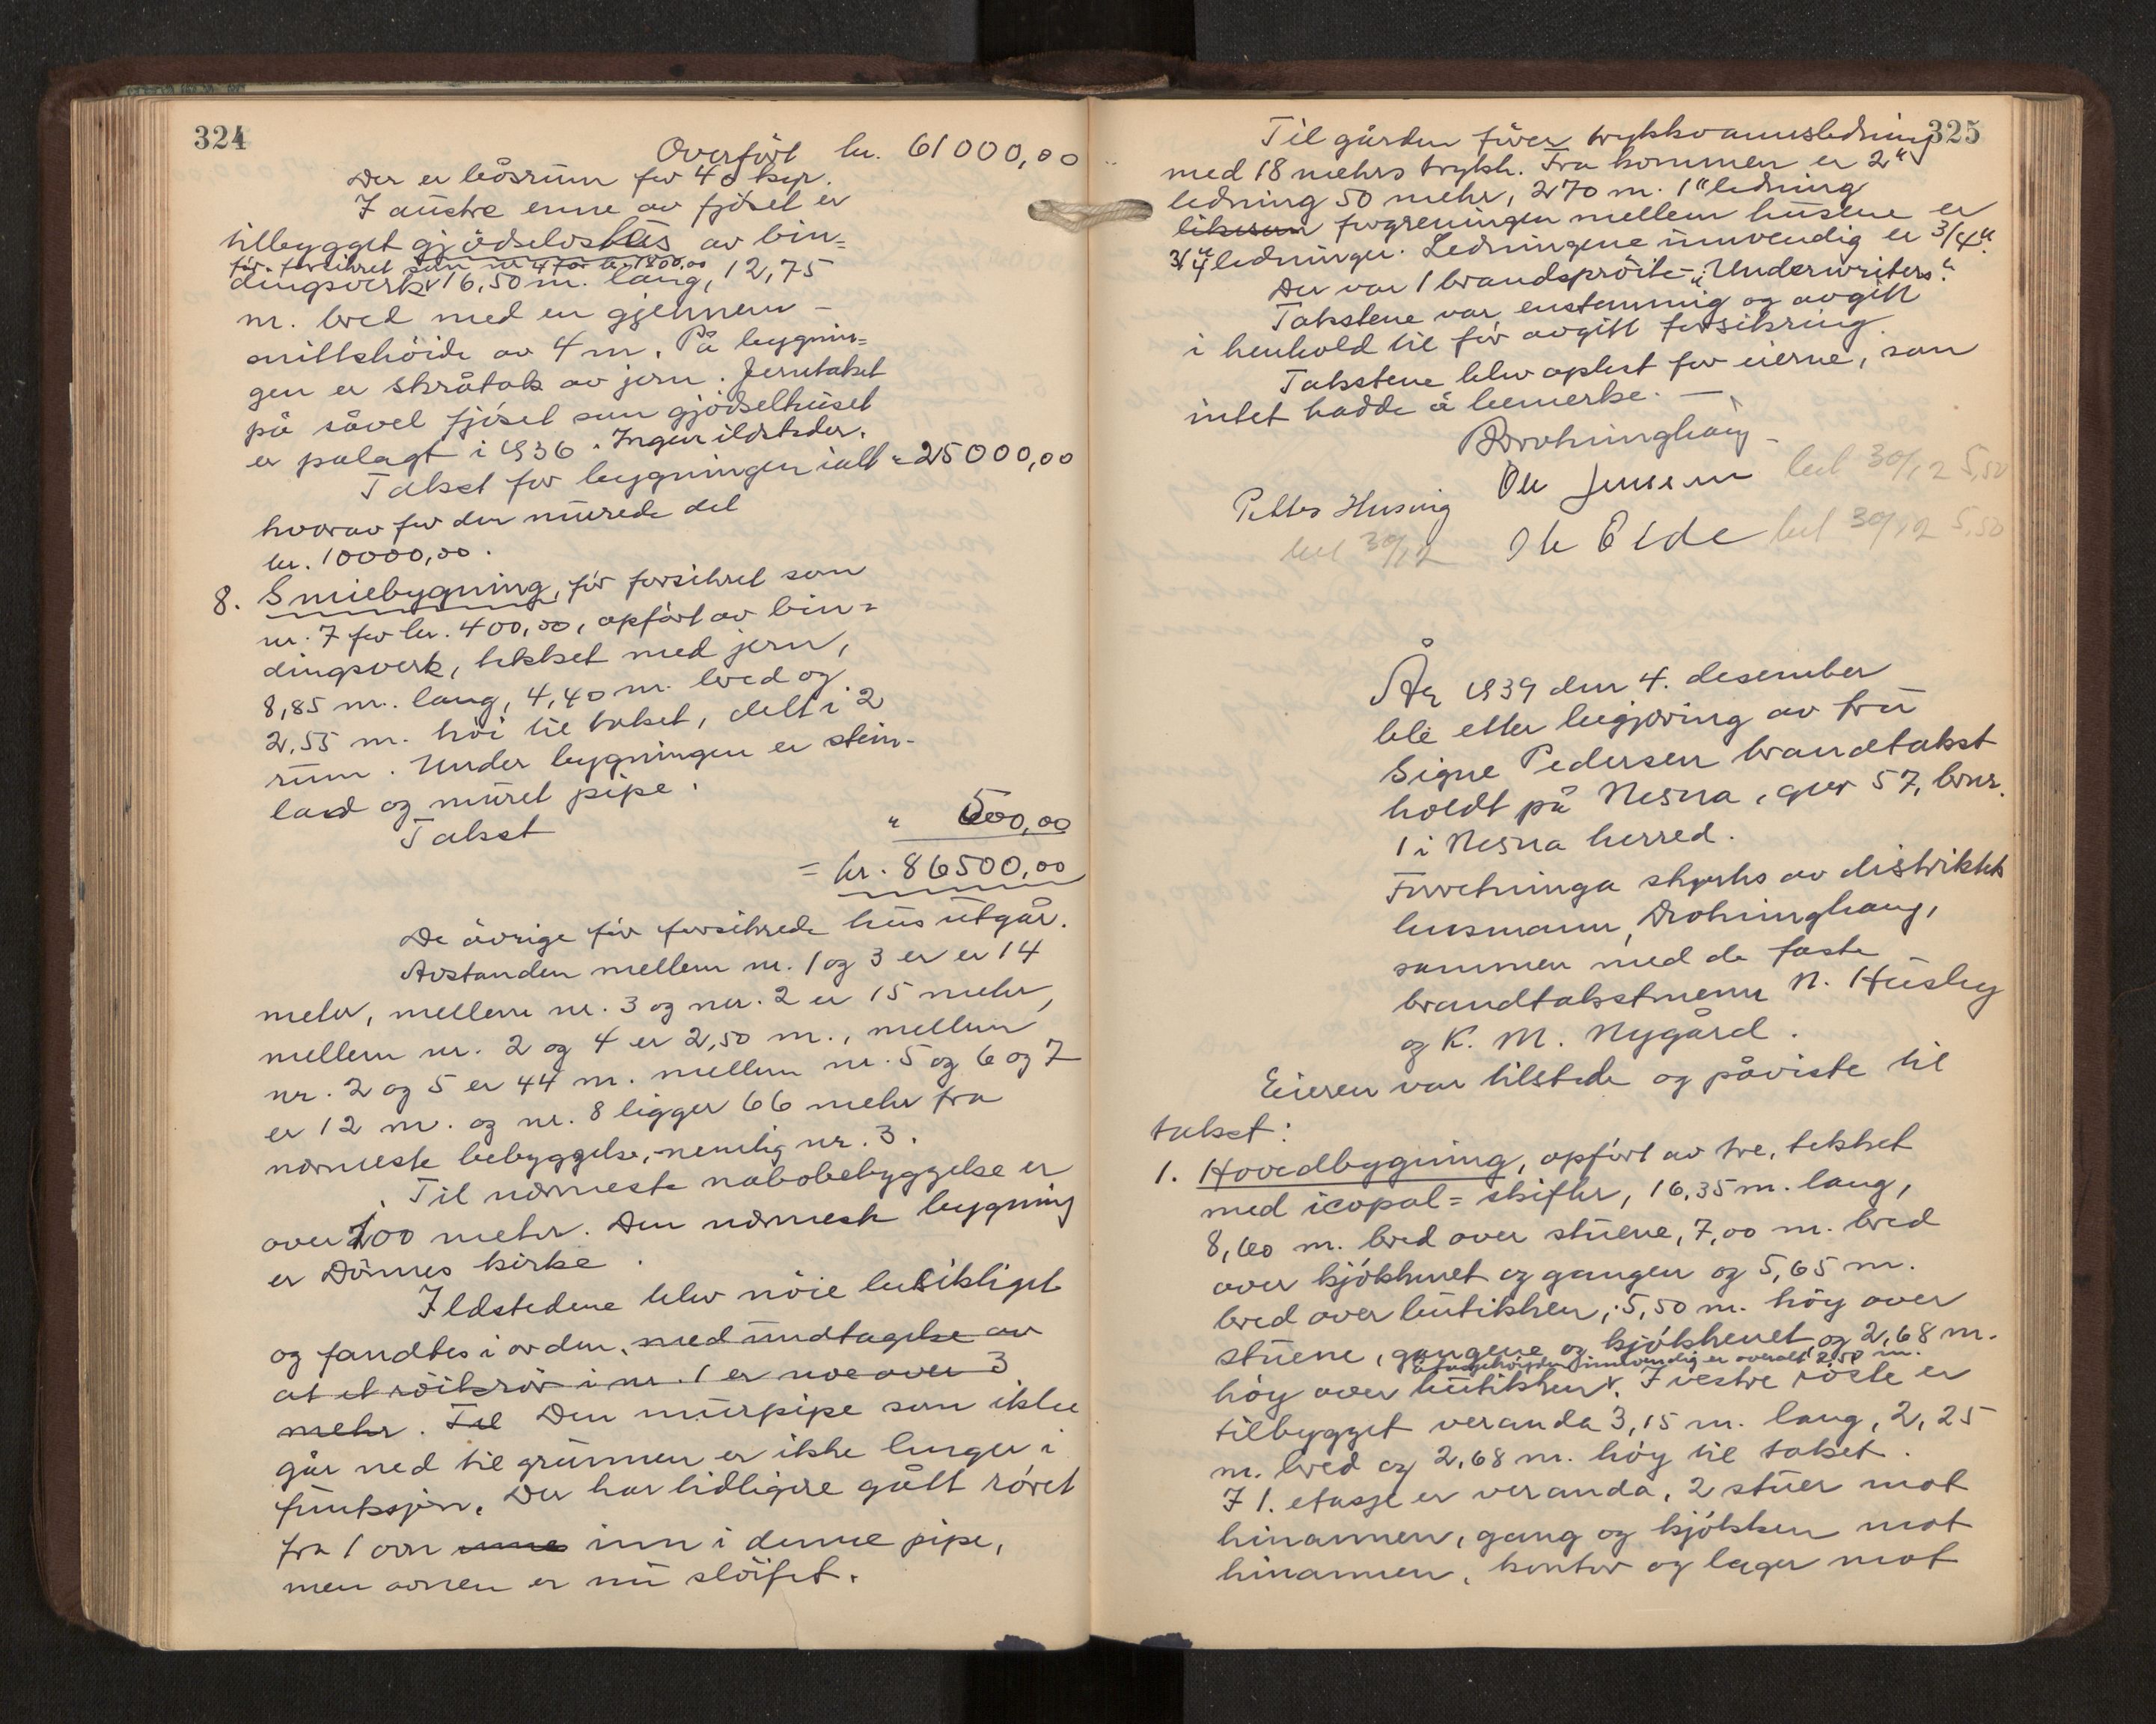 324
Overført kr. 61000,00
Der er båsrum for 40 kyr.
I austre enne av fjøset er
tilbygget gjødselvskus av bin=
før forsikret som nr 4 for kr. 1800,00
dingsverk 16,50 m. lang, 12,75
m. bred med en gjennem-
snittshöide av 4 m. På bygnin=
gen er skråtak av jern. Jerntaket
på såvel fjöset som gjödselhuset
er pålagt i 1936. Ingen ildsteder.
Takst for bygningen ialt " 25000,00
hvorav for den murede del
kr. 10000,00.
8. Smiebygning, før forsikret som
nr. 7 for kr. 400,00, opfört av bin=
dingsverk, tekket med jern,
8,85 m. lang, 4,40 m. bred og
2,55 m. höi til taket, delt i 2
rum. Under bygningen er stein-
lad og muret pipe.
Takst " 500,00
= kr. 86500,00
De övrige för forsikrede hus utgår.
Avstanden mellem nr. 1 og 3 er er 14
meter, mellem nr. 3 og nr. 2 er 15 meter,
mellem nr. 2 og 4 er 2,50 m., mellem
nr. 2 og 5 er 44 m. mellem nr. 5 og 6 og 7
er 12 m. og nr. 8 ligger 66 meter fra
nærmeste bebyggelse, nemlig nr. 3.
Til nærmeste nabobebyggelse er
over 100 meter. Den nærmeste bygning
er Dönnes kirke.
Ildstedene blev nöie besiktiget
og fandtes i orden, med undtagelse av
at et röikrör i nr. 1 er noe over 3
meter. Til Den murpipe som ikke
går ned til grunnen er ikke lenger i
funksjon. Der har tidligere gått röret
fra 1 ovn inn i denne pipe,
men ovnen er nu slöifet.
325
Til gården förer trykkvannsledning
med 18 meters trykk. Fra kommen er 2"
ledning 50 meter, 270 m. 1" ledning
likesom forgreningen mellem husene er
3/4" ledninger. Ledningene innvendig er 3/4".
Der var 1 brandspröite - "Underwriters".
Takstene var enstemmig og avgitt
i henhold til för avgitt forsikring.
Takstene blev oplest for eierne, som
intet hadde å bemerke. —
Drotninghaug
Ole Jensen bet 30/12 5,50
Petter Husvig
bet 30/12
Ole Eide bet 30/12 5,50
År 1939 den 4. desember
ble etter begjæring av fru
Signe Pedersen brandtakst
holdt på Nesna, gnr 57, bnr.
1 i Nesna herred.
Forretninga styrtes av distriktets
lensmann, Drotninghaug,
sammen med de faste
brandtakstmenn N. Husby
og K. M. Nygård.
Eieren var tilstede og påviste til
takst:
1. Hovedbygning, opfört av tre, tekket
med icopal = skifter, 16,35 m. lang,
8,60 m. bred over stuene, 7,00 m. bred
over kjökkenet og gangen og 5,65 m.
bred over butikken, 5,50 m. höy over
stuene, gangene og kjökkenet og 2,68 m.
Etasjehöyden innvendig er overalt 2,50 m.
höy over butikken. I vestre röste er
tilbygget veranda 3,15 m. lang, 2,25
m. bred og 2,68 m. höy til taket.
I 1. etasje er veranda, 2 stuer mot
hinannen, gang og kjökken mot
hinannen, kontor og lager mot